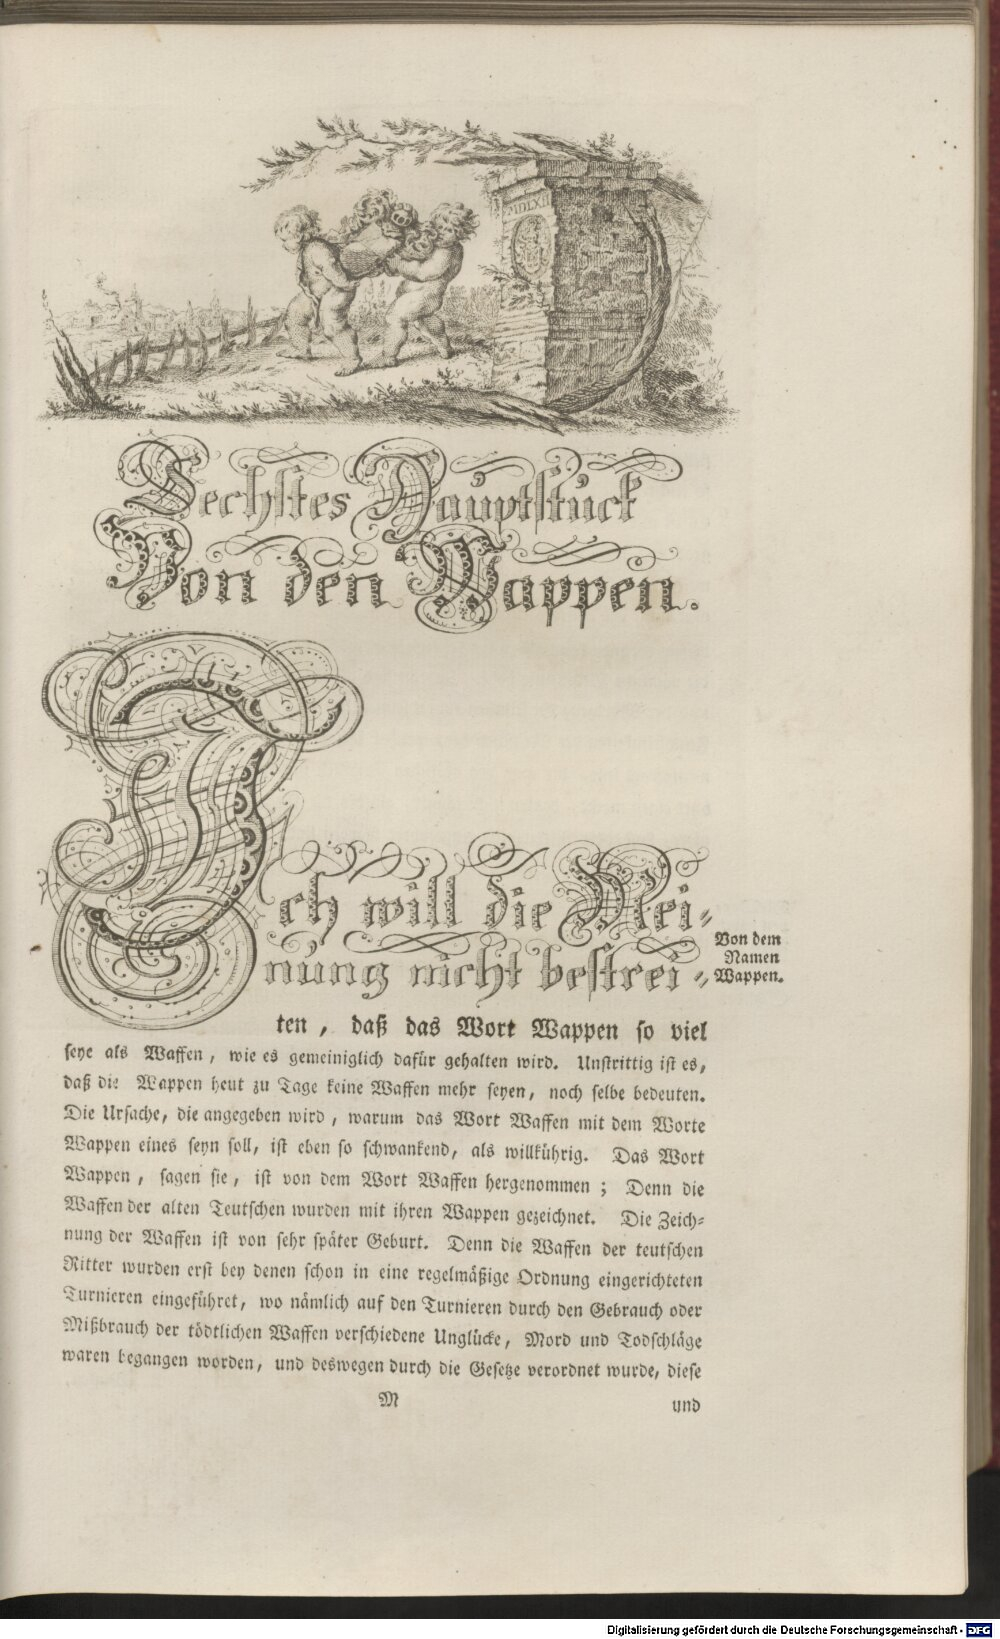 MDLXII
Sechstes Hauptstück
Von den Wappen.
Ich will die Mei-
nung nicht bestrei-
Von dem
Namen
Wappen.
ten, daß das Wort Wappen so viel
seye als Waffen, wie es gemeiniglich dafür gehalten wird. Unstrittig ist es,
daß die Wappen heut zu Tage keine Waffen mehr seyen, noch selbe bedeuten.
Die Ursache, die angegeben wird, warum das Wort Waffen mit dem Worte
Wappen eines seyn soll, ist eben so schwankend, als willkührig. Das Wort
Wappen, sagen sie, ist von dem Wort Waffen hergenommen; Denn die
Waffen der alten Teutschen wurden mit ihren Wappen gezeichnet. Die Zeich-
nung der Waffen ist von sehr später Geburt. Denn die Waffen der teutschen
Ritter wurden erst bey denen schon in eine regelmäßige Ordnung eingerichteten
Turnieren eingeführet, wo nämlich auf den Turnieren durch den Gebrauch oder
Mißbrauch der tödtlichen Waffen verschiedene Unglücke, Mord und Todschläge
waren begangen worden, und deswegen durch die Gesetze verordnet wurde, diese
M
und
Digitalisierung gefördert durch die Deutsche Forschungsgemeinschaft - DFG